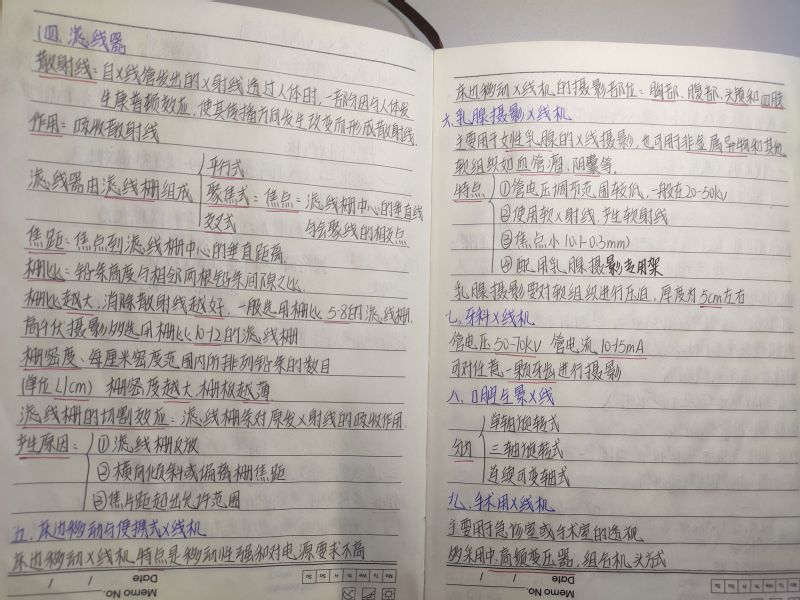 四. 滤线器
散射线：自X线管发出的X射线透过人体时，一部分因与人体发
生康普顿效应，使其传播方向发生改变而形成散射线.
作用：吸收散射线
滤线器由滤线栅组成
平行式
聚焦式：焦点：滤线栅中心的垂直线
与会聚线的相交点
交叉式
焦距：焦点到滤线栅中心的垂直距离
栅比：铅条高度与相邻两根铅条间隙之比.
栅比越大，消除散射线越好，一般选用栅比5-8的滤线栅.
高千伏摄影多选用栅比10-12的滤线栅
栅密度：每厘米密度范围内所排列铅条的数目
(单位L/cm) 栅密度越大，栅板越薄
滤线栅的切割效应：滤线栅条对原发X射线的吸收作用.
产生原因：
①滤线栅反放
②横向倾斜或偏离栅焦距
③焦片距超出允许范围
五. 床边移动与便携式X线机
床边移动X线机特点是移动性强和对电源要求不高
Memo No.
Date / /
Mo Tu We Th Fr Sa Su
床边移动X线机的摄影部位：胸部、腹部、头颅和四肢
六. 乳腺摄影X线机
主要用于女性乳腺的X线摄影，也可用于非金属异物和其他
软组织如血管瘤、阴囊等.
特点
①管电压调节范围较低，一般在20-50kV
②使用软X射线，产生软射线
③焦点小(0.1-0.3mm)
④配用乳腺摄影专用架
乳腺摄影要对软组织进行压迫，厚度为5cm左右
七. 牙科X线机
管电压50-70kV 管电流10-15mA
可对任意一颗牙齿进行摄影
八. 口腔全景X线
分为
单轴旋转式
三轴旋转式
连续可变轴式
九. 手术用X线机
主要用于急诊室或手术室的透视
多采用中.高频变压器，组合机头方式
Memo No.
Date / /
Mo Tu We Th Fr Sa Su